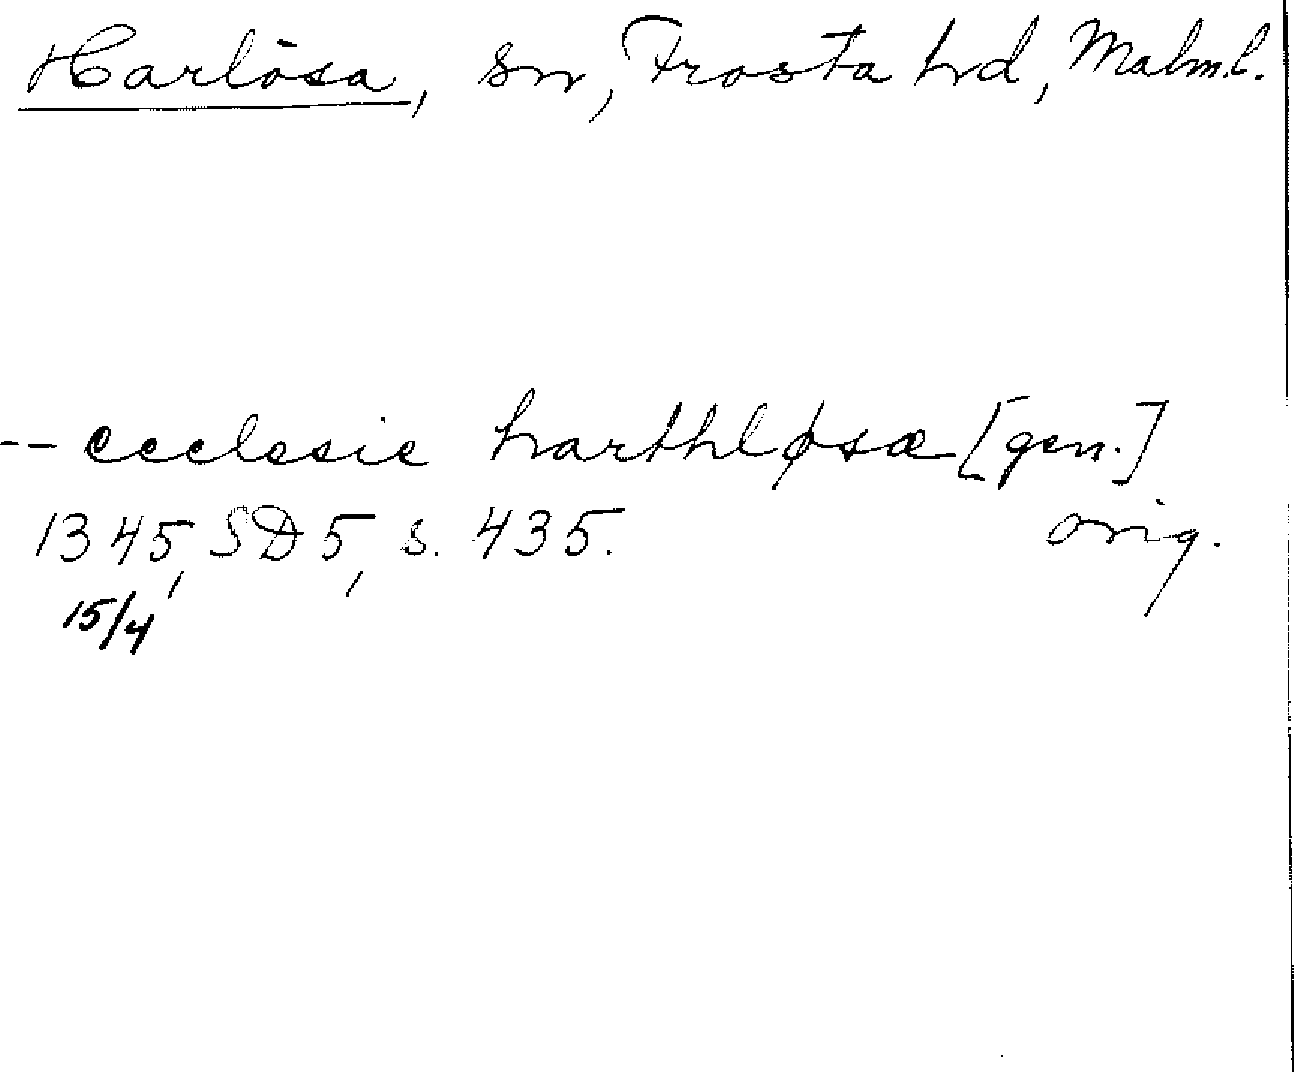 Harlösa, sn, Frosta hd, Malm.l.
-- ecclesie harthløsæ [gen.]
1345, SD 5, s. 435. orig.
15/4